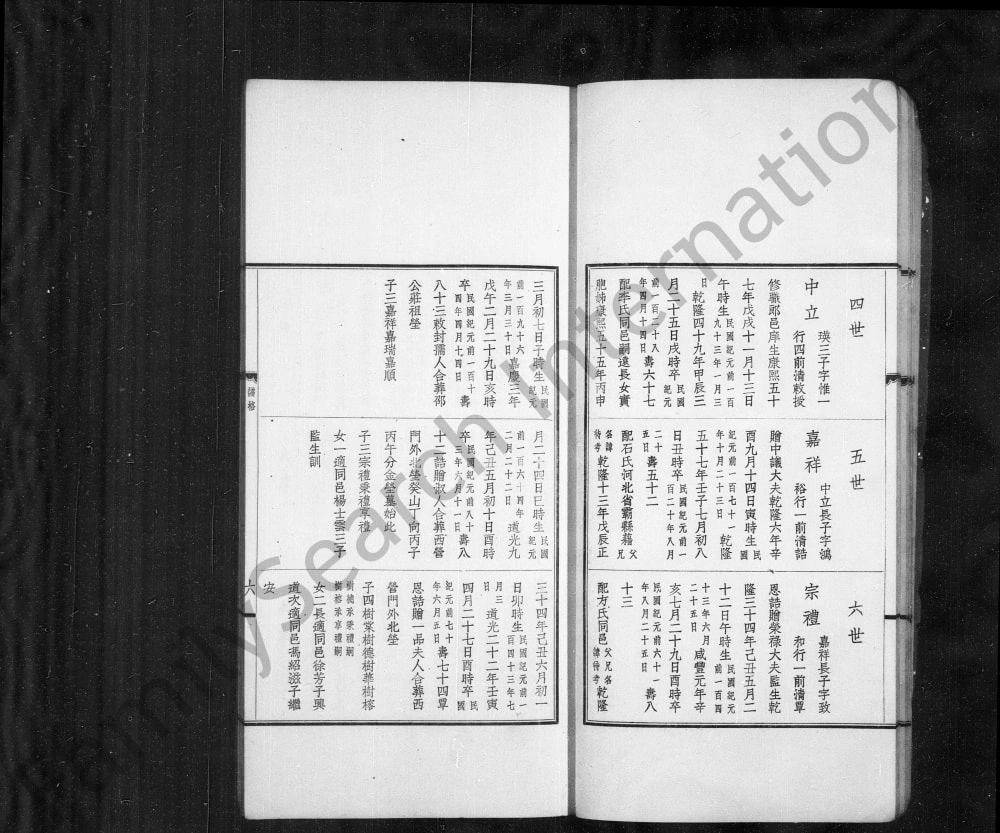 四世
中立 瑛三子字惟一
行四前清敕授
修職郎邑庠生康熙五十
七年戊戌十一月十三日
午時生民國紀元前一百九十三年一月三日
乾隆四十九年甲辰三
月二十五日戌時卒民國紀元前一百二十八年四月十四日
壽六十七
配李氏同邑嗣遠長女實
胞姊康熙五十五年丙申
三月初七日子時生民國紀元前一百九十六年三月三十日
嘉慶三年
戊午二月二十九日亥時
卒民國紀元前一百十四年四月十四日壽
八十三敕封孺人合葬鄧
公莊祖塋
子三嘉祥嘉瑞嘉順
五世
嘉祥 中立長子字鴻
裕行一前清誥
贈中議大夫乾隆六年辛
酉九月十四日寅時生民國紀元前一百七十一年十月二十三日
乾隆
五十七年壬子七月初八
日丑時卒民國紀元前一百二十年八月二十五日
壽五十二
配石氏河北省霸縣籍父兄名諱待考
乾隆十三年戊辰正
月二十四日巳時生民國紀元前一百六十四年二月二十二日
道光九
年己丑五月初十日酉時
卒民國紀元前八十三年六月十一日壽八
十二誥贈淑人合葬西營
門外北塋癸山丁向丙子
丙午分金塋墓始此
子三宗禮秉禮享禮
女一適同邑楊士雲三子
監生訓
六世
宗禮 嘉祥長子字致
和行一前清覃
恩誥贈榮祿大夫監生乾
隆三十四年己丑五月二
十二日午時生民國紀元前一百四十三年六月二十五日
咸豐元年辛
亥七月二十九日酉時卒
民國紀元前六十一年八月二十五日壽八
十三
配方氏同邑父兄名諱待考乾隆
三十四年己丑六月初一
日卯時生民國紀元前一百四十三年七月三日
道光二十二年壬寅
四月二十七日酉時卒民國紀元前七十年六月五日
壽七十四覃
恩誥贈一品夫人合葬西
營門外北塋
子四樹棠樹德樹華樹榕
樹德承秉禮嗣
樹榕承享禮嗣
女二長適同邑徐芳子興
道次適同邑馮紹滋子繼
安
六
MySearch International